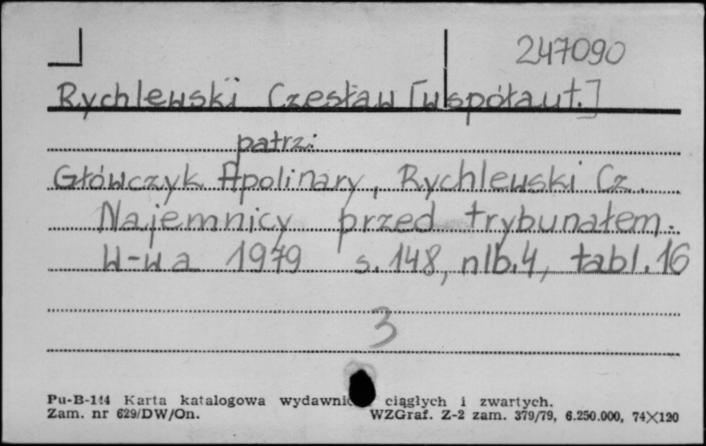 247090
Rychlewski Czesław [współaut.]
patrz:
Główczyk Apolinary, Rychlewski Cz.
Najemnicy przed trybunałem.
W-wa 1979 s. 148, nlb. 4, tabl. 16
3
Pu-B-114 Karta katalogowa ciągłych i zwartych.
Zam. nr 629/DW/On. WZGraf. Z-2 zam. 379/79, 6.250.000, 74×120